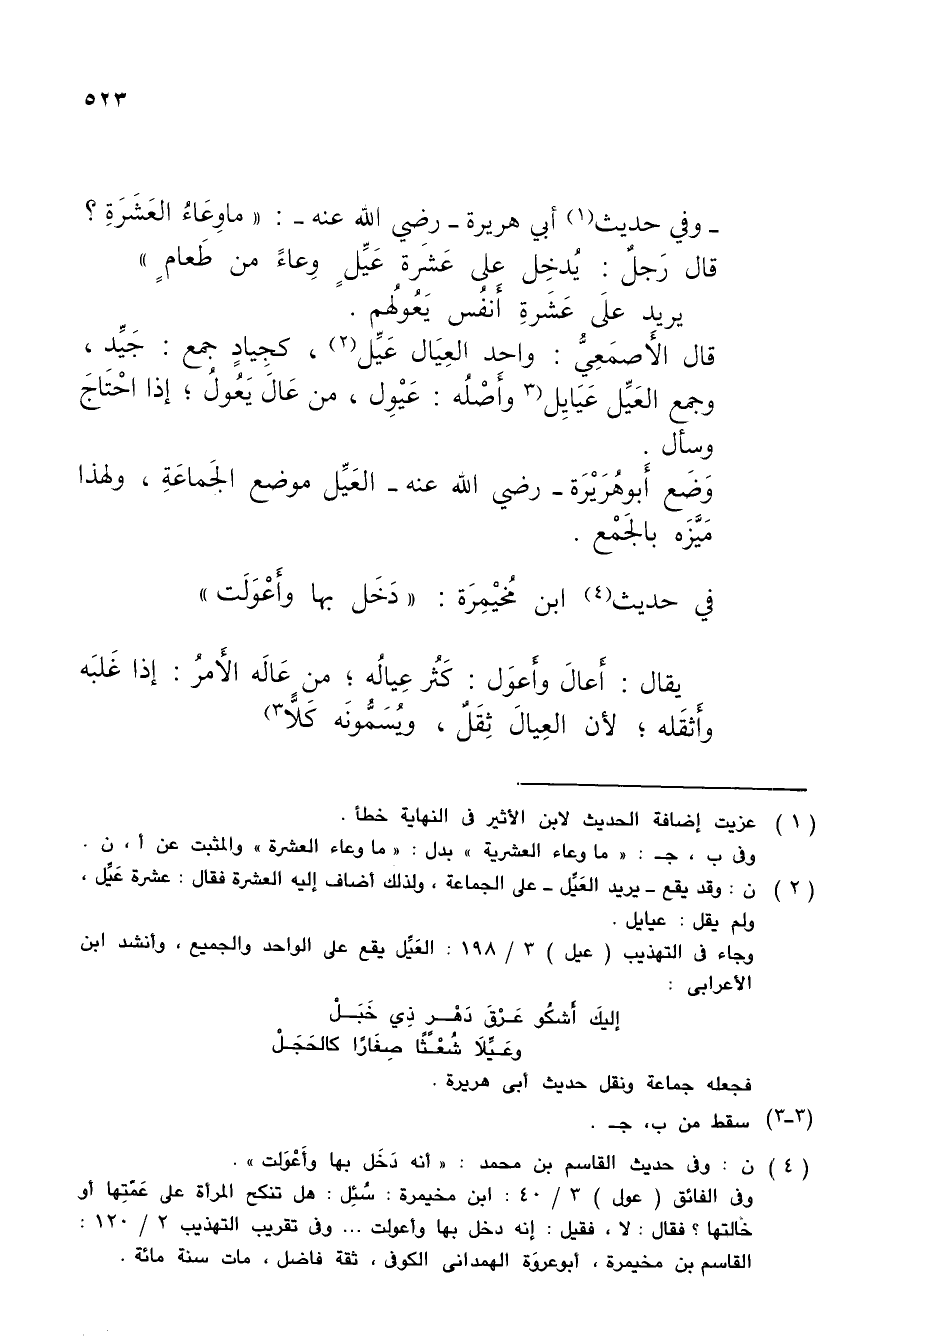 ٥٢٣
ـ وفي حديث(١) أبي هريرة ـ رضي الله عنه ـ : « ماوِعَاءُ العَشَرَةِ ؟
قال رَجلٌ : يُدخِل على عَشَرة عَيِّلٍ وِعاءً من طَعام ٍ »
يريد علَى عَشَرةِ أَنفُس يَعُولُهم .
قال الأَصمَعِيُّ : واحد العِيَال عَيِّل(٢) ، كجِيادٍ جمع : جَيِّد ،
وجمع العَيِّل عَيَايِل(٣ وأَصْلُه : عَيْوِل ، من عَالَ يَعُولُ ؛ إذا احْتَاجَ
وسأل .
وَضَع أَبوهُرَيْرَة ـ رضي الله عنه ـ العَيِّل موضع الجَماعَةِ ، ولهذا
مَيَّزَه بالجَمْع .
في حديث(٤) ابن مُخَيْمِرَة : « دَخَل بها وأَعْوَلَت »
يقال : أَعالَ وأَعوَل : كَثُر عِيالُه ؛ من عَالَه الأَمرُ : إذا غَلبَه
وأَثقَله ؛ لأن العِيالَ ثِقَلٌ ، ويُسَمُّونَه كَلًّا٣)
( ١ ) عزيت إضافة الحديث لابن الأثير فى النهاية خطأ .
وفى ب ، جـ : « ما وعاء العشرية » بدل : « ما وعاء العشرة » والمثبت عن أ ، ن .
( ٢ ) ن : وقد يقع ـ يريد العَيِّل ـ على الجماعة ، ولذلك أضاف إليه العشرة فقال : عشرة عَيِّل ،
ولم يقل : عيايل .
وجاء فى التهذيب ( عيل ) ٣ / ١٩٨ : العَيِّل يقع على الواحد والجميع ، وأنشد ابن
الأعرابى :
إليكَ أَشكُو عَرْقَ دَهْـر ذِي خَبَـلْ
وعَـيِّلَا شُعْـثًا صِغَارًا كالحَجَـلْ
فجعله جماعة ونقل حديث أبى هريرة .
(٣-٣) سقط من ب، جـ .
( ٤ ) ن : وفى حديث القاسم بن محمد : « أنه دَخَل بها وأَعْوَلَت » .
وفى الفائق ( عول ) ٣ / ٤٠ : ابن مخيمرة : سُئِل : هل تنكح المرأة على عَمَّتِها أو
خالتها ؟ فقال : لا ، فقيل : إنه دخل بها وأعولت ... وفى تقريب التهذيب ٢ / ١٢٠ :
القاسم بن مخيمرة ، أبوعروَة الهمدانى الكوفى ، ثقة فاضل ، مات سنة مائة .